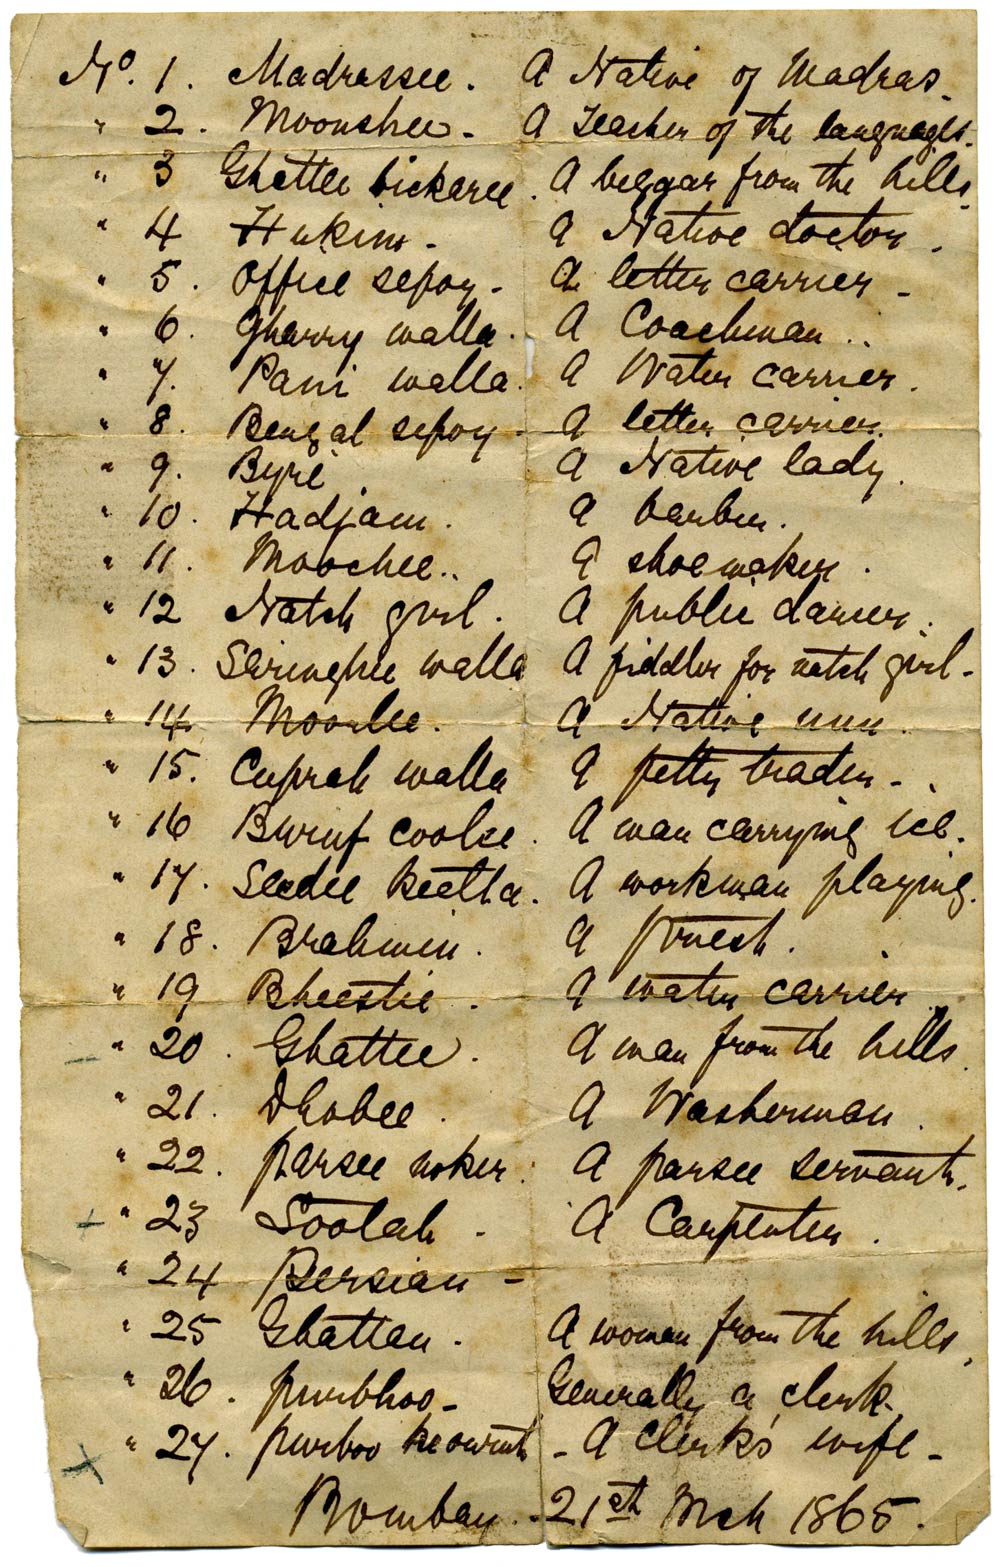 No. 1. Madrassee. A Native of Madras.
" 2. Moonshee - A Teacher of the languages.
" 3 Ghattee bickeree. A beggar from the hills.
" 4 Hukim - A Native doctor.
" 5. Office sepoy - A letter carrier -
" 6. Gharry walla. A Coachman..
" 7. Pani walla. A Water carrier.
" 8. Bengal sepoy - A letter carrier.
" 9. Byre A Native lady.
" 10. Hadjam. A barber.
" 11. Moochee.. A shoemaker.
" 12 Natch girl. A public dancer.
" 13. Saringhee walla A fiddler for natch girl -
" 14. Moorlee. A Native nun.
" 15. Cuprah walla A petty trader -
" 16 Burruf coolee. A man carrying ice.
" 17. Seedee keetla. A workman playing.
" 18. Brahmin. A priest.
" 19 Bheestie. A water carrier
" 20. Ghattee. A man from the hills.
" 21. Dhobee. A Washerman.
" 22. parsee noker. A parsee servant.
" 23 Sootah - A Carpenter.
" 24 Persian -
" 25 Ghatten. A woman from the hills.
" 26. purbhoo - Generally a clerk.
" 27. purboo - A clerk's wife -
Bombay. - 21st Mch 1865.